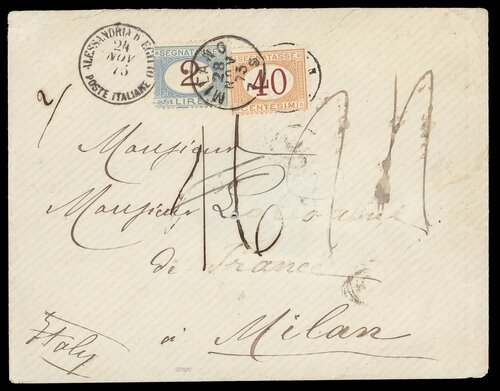 ALESSANDRIA D'EGITTO
24
NOV
73
POSTE ITALIANE
SEGNATASSE
2
LIRE
MILANO
28
NOV
73
SEGNATASSE
40
CENTESIMI
Monsieur
Monsieur
de France
à Milan
Italy